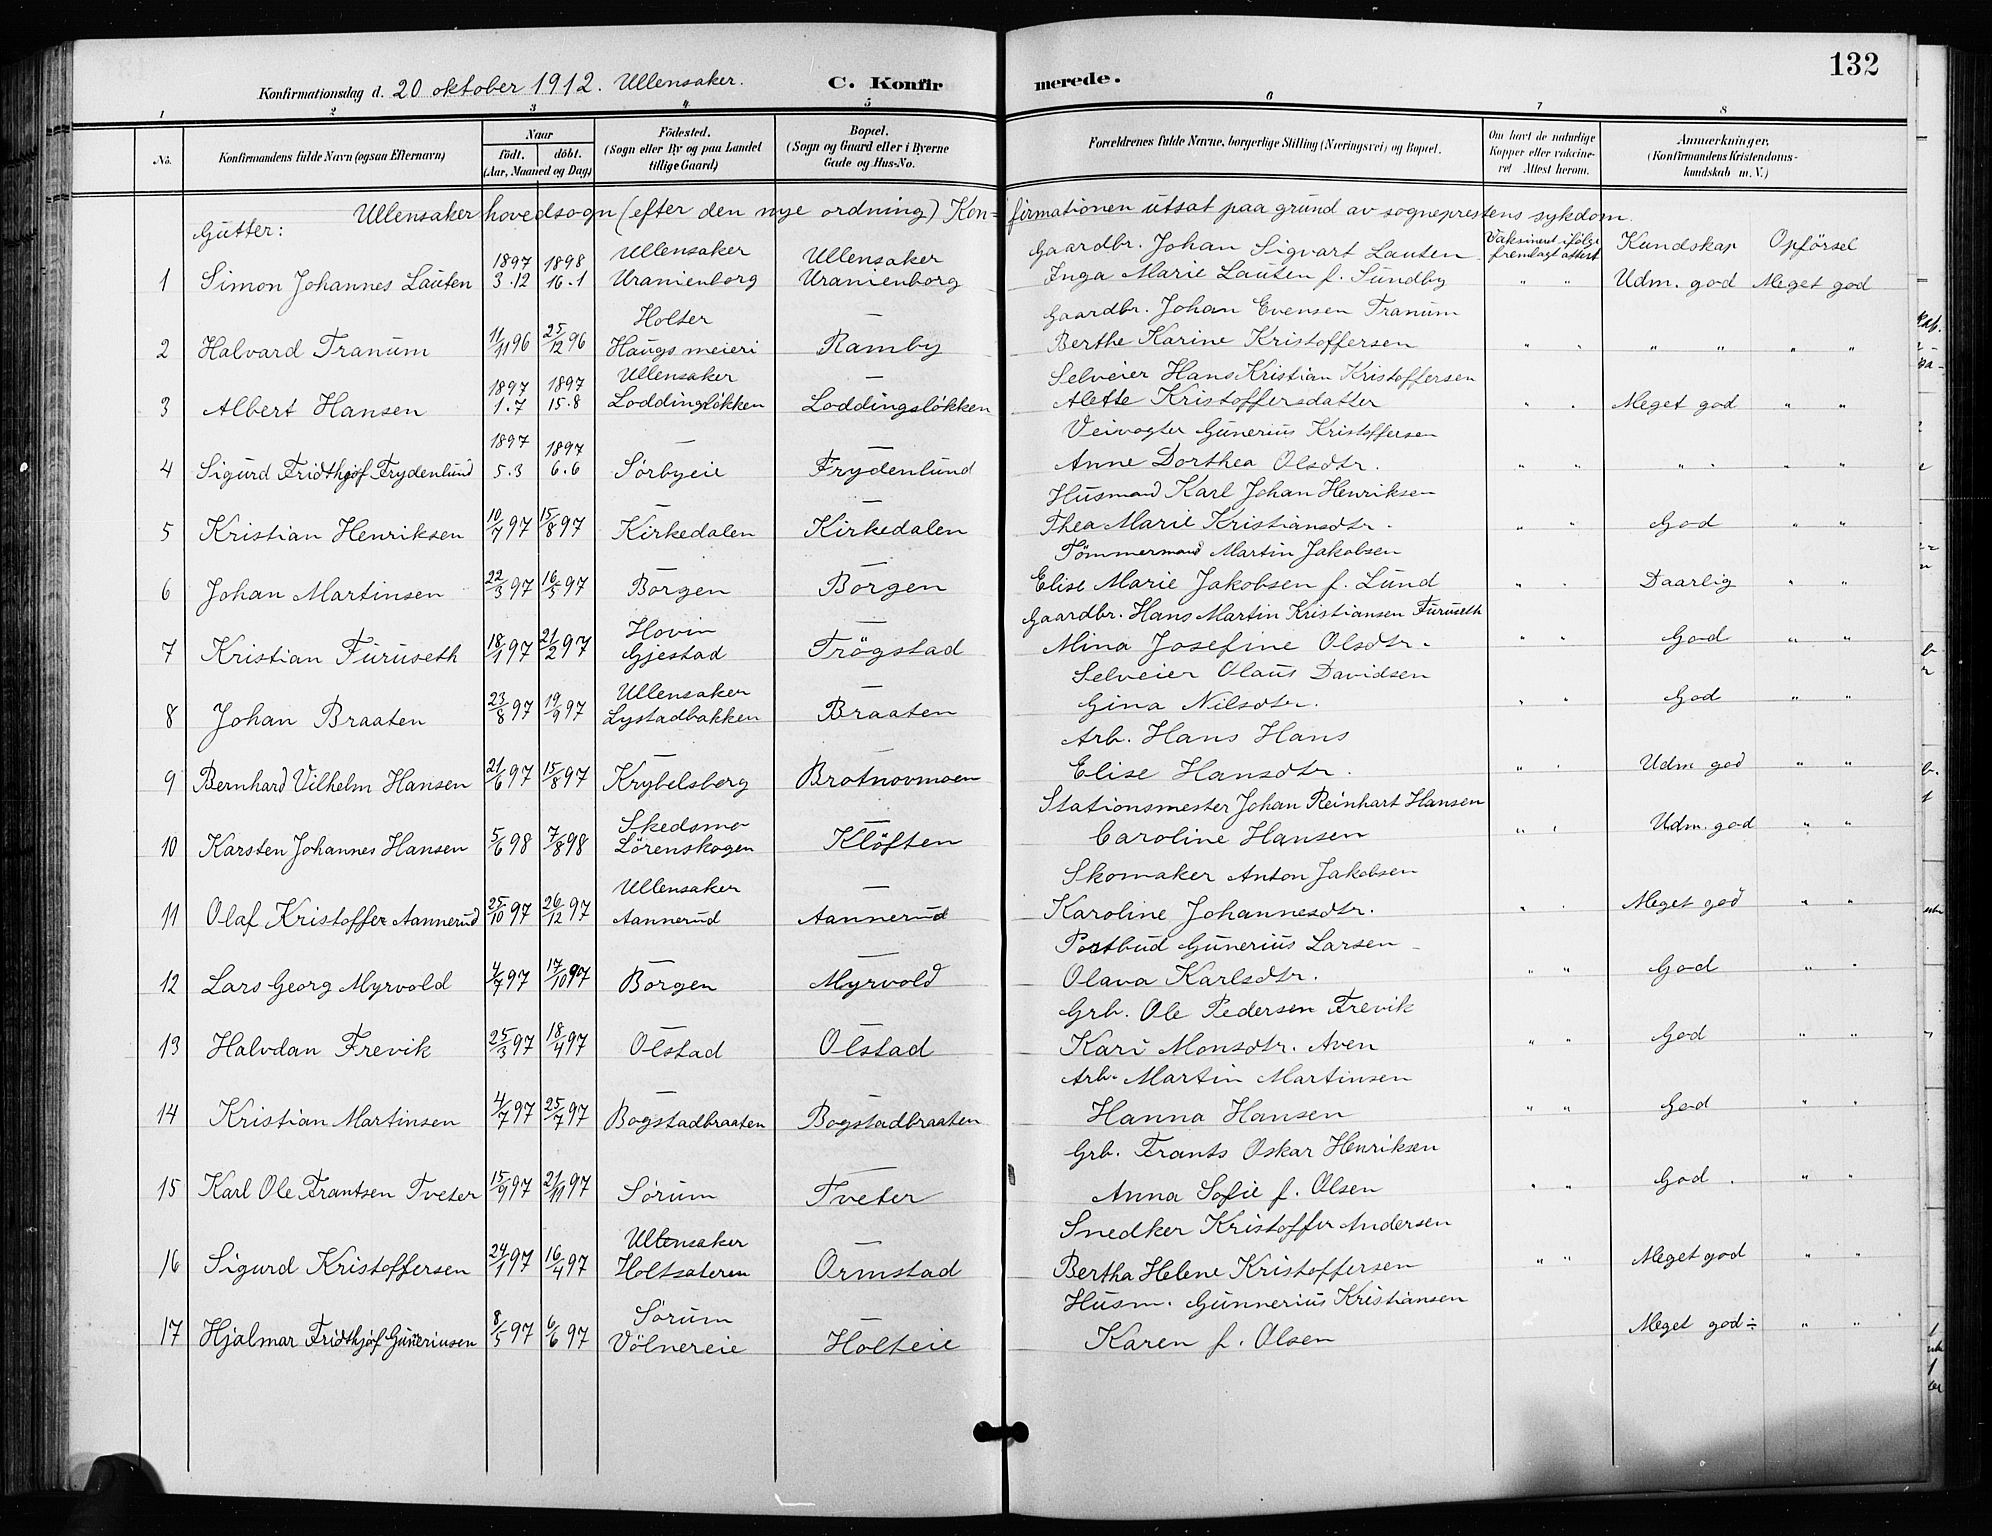 132
Konfirmationsdag d. 20 oktober 1912. Ullensaker. C. Konfirmerede.
1 2 3 4 5 6 7 8
No. Konfirmandens fulde Navn (ogsaa Efternavn) Naar födt. döbt. (Aar, Maaned og Dag) Födested. (Sogn eller By og paa Landet tillige Gaard) Bopæl. (Sogn og Gaard eller i Byerne Gade og Hus-No. Forældrenes fulde Navne, borgerlige Stilling (Næringsvei) og Bopæl. Om havt de naturlige Kopper eller vakcineret Attest herom. Anmærkninger, (Konfirmandens Kristendomskundskab m. V.)
Ullensaker hovedsogn (efter den nye ordning) Konfirmationen utsat paa grund av sogneprestens sykdom.
Gutter:
Vaksineret ifölge fremlagt attest Kundskap Opförsel
1 Simon Johannes Lauten 1897 3.12 1898 16.1 Ullensaker Uranienborg Ullensaker Uranienborg Gaardbr. Johan Sigvart Lauten
Inga Marie Lauten f. Sundby " " Udm. god Meget god
2 Halvard Tranum 11/11 96 25/12 96 Holter Haugs meieri — Ramby Gaardbr. Johan Evensen Tranum
Berthe Karine Kristoffersen " " " " " "
3 Albert Hansen 1897 1.7 1897 15.8 Ullensaker Loddingslökken — Loddingslökken Selveier Hans Kristian Kristoffersen
Alette Kristoffersdatter " " Meget god " "
4 Sigurd Fridthjof Frydenlund 1897 5.3 1897 6.6 — Sörbyeie — Frydenlund Veivogter Gunerius Kristoffersen
Anne Dorthea Olsdtr. " " " " " "
5 Kristian Henriksen 10/7 97 15/8 97 — Kirkedalen — Kirkedalen Husmand Karl Johan Henriksen
Thea Marie Kristiansdtr. " " God " "
6 Johan Martinsen 22/3 97 16/5 97 — Borgen — Borgen Tömmermand Martin Jakobsen
Elise Marie Jakobsen f. Lund " " Daarlig " "
7 Kristian Furuseth 18/1 97 21/2 97 Hovin Gjestad — Trögstad Gaardbr. Hans Martin Kristiansen Furuseth
Mina Josefine Olsdtr. " " God " "
8 Johan Braaten 23/8 97 19/9 97 Ullensaker Lystadbakken — Braaten Selveier Olaus Davidsen
Gina Nilsdtr. " " God " "
9 Bernhard Vilhelm Hansen 21/6 97 15/8 97 — Krybelsberg — Brotnovmoen Arb. Hans Hans
Elise Hansdtr. " " Udm god " "
10 Karsten Johannes Hansen 5/6 98 7/8 98 Skedsmo Lörenskogen — Klöften Stationsmester Johan Reinhart Hansen
Caroline Hansen " " Udm. god " "
11 Olaf Kristoffer Aannerud 25/10 97 26/12 97 Ullensaker Aannerud — Aannerud Skomaker Anton Jakobsen
Karoline Johannesdtr. " " Meget god " "
12 Lars Georg Myrvold 4/7 97 17/10 97 — Borgen — Myrvold Postbud Gunerius Larsen
Olava Karlsdtr. " " God " "
13 Halvdan Frevik 25/3 97 18/4 97 — Olstad — Olstad Grb. Ole Pedersen Frevik
Kari Monsdtr. Aven " " God " "
14 Kristian Martinsen 4/7 97 25/7 97 — Bogstadbraaten — Bogstadbraaten Arb. Martin Martinsen
Hanna Hansen " " God " "
15 Karl Ole Frantsen Tveter 15/9 97 21/11 97 — Sörum — Tveter Grb. Frants Oskar Henriksen
Anna Sofie f. Olsen " " God. " "
16 Sigurd Kristoffersen 24/1 97 16/4 97 Ullensaker Holtsateren — Ormstad Snedker Kristoffer Andersen
Bertha Helene Kristoffersen " " Meget god " "
17 Hjalmar Fridthjof Guneriusen 8/5 97 6/6 97 Sörum Völnereie — Holteie Husm. Gunnerius Kristiansen
Karen f. Olsen Meget god ÷ " "